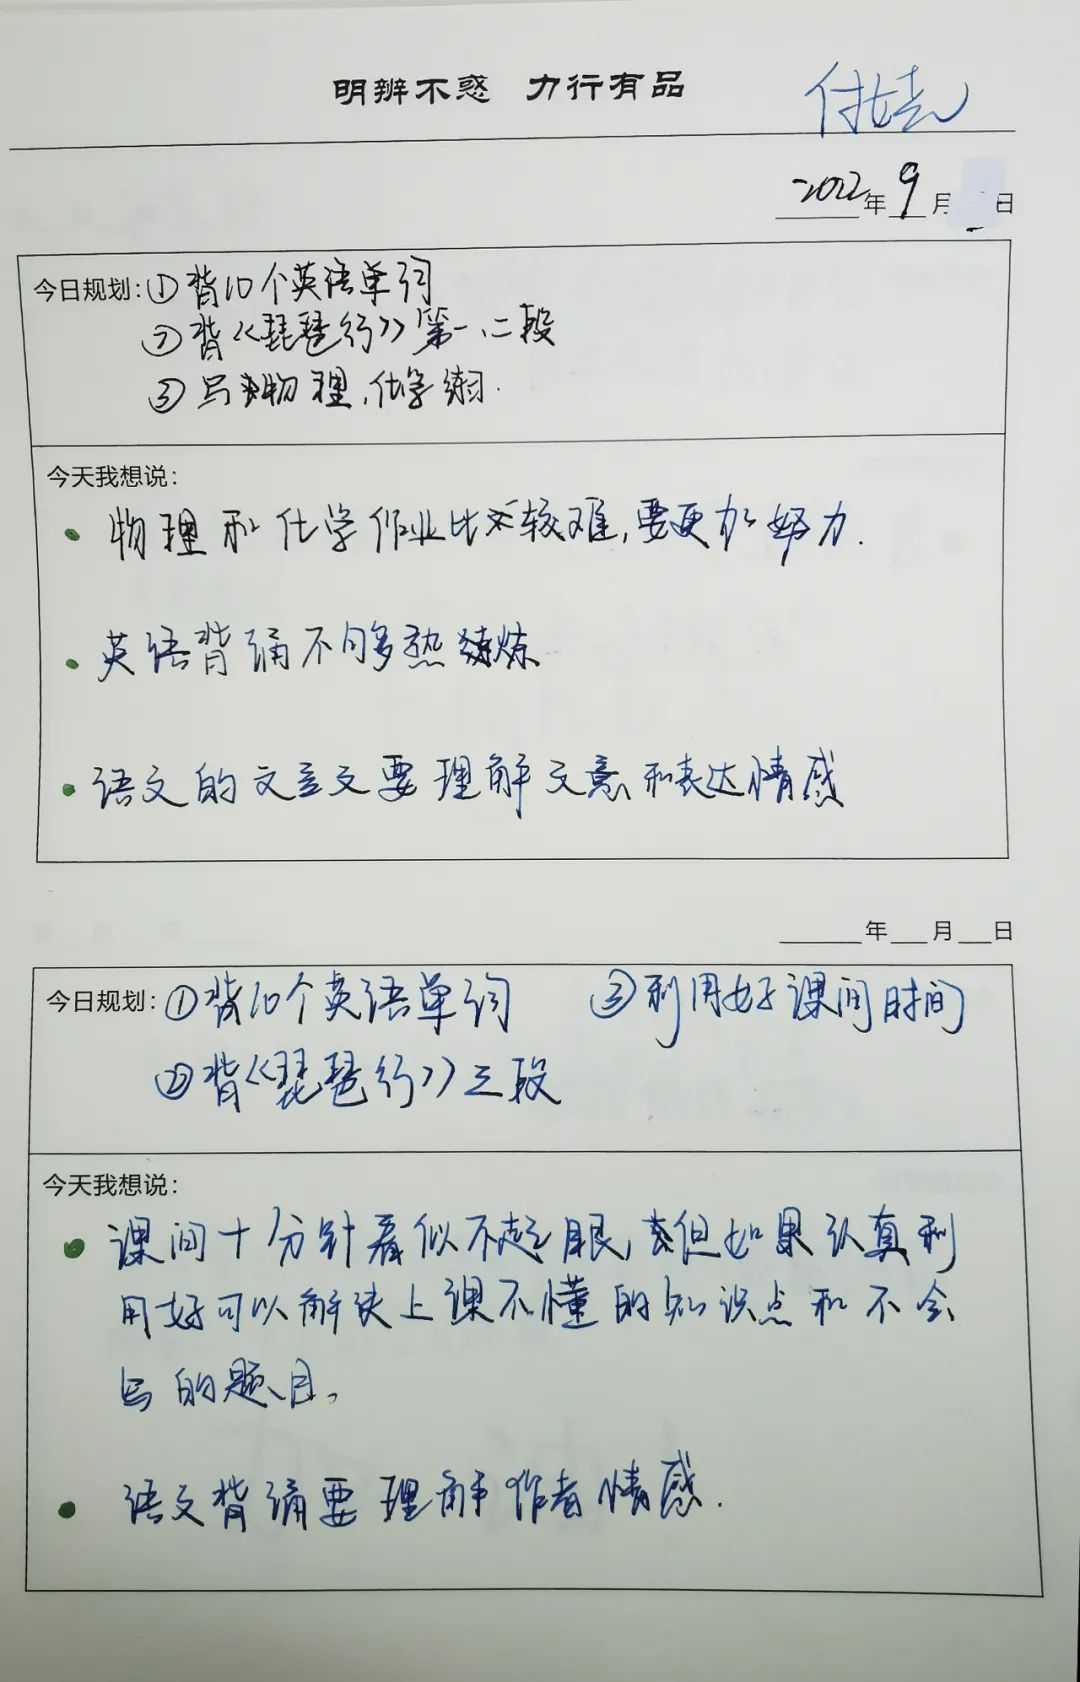 明辨不惑 力行有品
付娆
2022年9月 日
今日规划:①背10个英语单词
②背《琵琶行》第一、二段
③写物理、化学练习.
今天我想说:
• 物理和化学作业比较难,要更加努力.
• 英语背诵不够熟炼
• 语文的文言文要理解文意和表达情感
年 月 日
今日规划:①背10个英语单词 ③利用好课间时间
②背《琵琶行》三段
今天我想说:
• 课间十分针看似不起眼,但如果认真利
用好可以解决上课不懂的知识点和不会
写的题目。
• 语文背诵要理解作者情感.